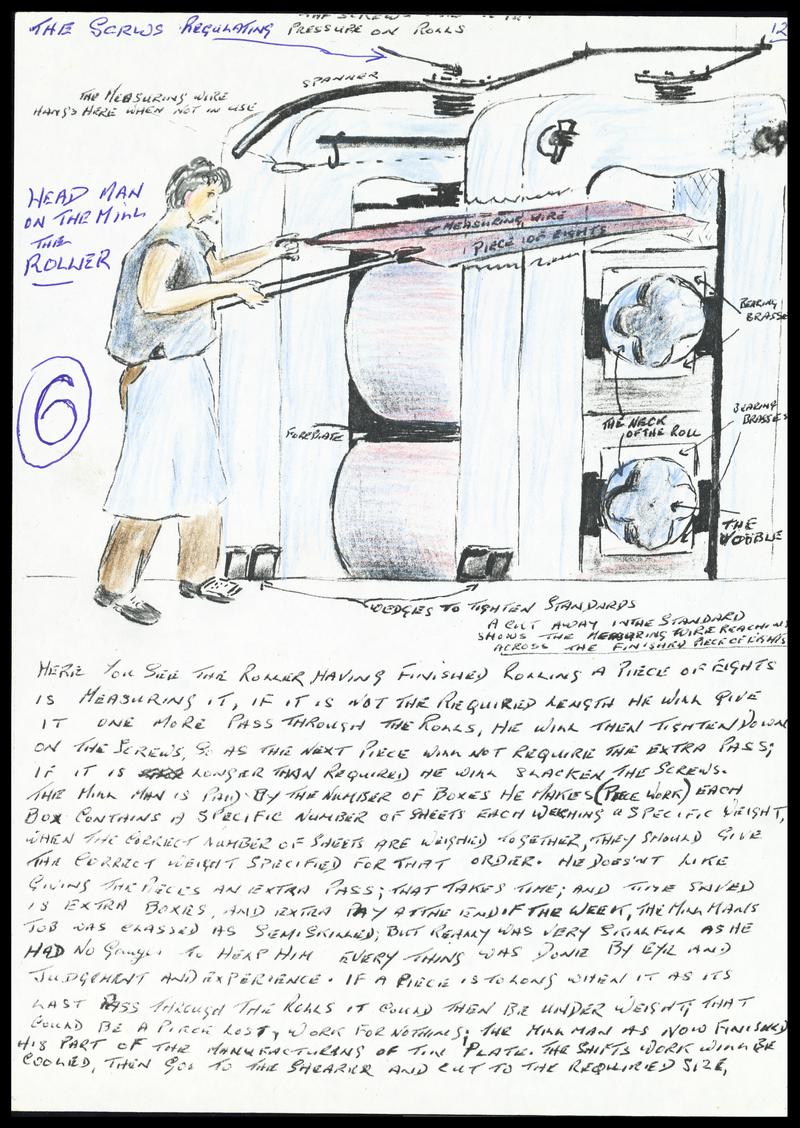 THE SCRWS REGULATING PRESSURE ON ROLLS
12
SPANNER
THE MEASURING WIRE
HANGS HERE WHEN NOT IN USE
HEAD MAN
ON THE MILL
THE
ROLLER
MEASURING WIRE
PIECE OF EIGHTS
BEARING
BRASSE
6
FOREPLATE
THE NECK
OF THE ROLL
BEARING
BRASSES
THE
WOBBLE
WEDGES TO TIGHTEN STANDARDS
A CUT AWAY IN THE STANDARD
SHOWS THE MEASURING WIRE REACHING
ACROSS THE FINISHED PIECE OF EIGHTS
HERE YOU SEE THE ROLLER HAVING FINISHED ROLLING A PIECE OF EIGHTS
IS MEASURING IT, IF IT IS NOT THE REQUIRED LENGTH HE WILL GIVE
IT ONE MORE PASS THROUGH THE ROLLS, HE WILL THEN TIGHTEN DOWN
ON THE SCREWS, SO AS THE NEXT PIECE WILL NOT REQUIRE THE EXTRA PASS;
IF IT IS LONGER THAN REQUIRED HE WILL SLACKEN THE SCREWS.
THE MILL MAN IS PAID BY THE NUMBER OF BOXES HE MAKES (PIECE WORK) EACH
BOX CONTAINS A SPECIFIC NUMBER OF SHEETS EACH WEIGHING a SPECIFIC WEIGHT,
WHEN THE CORRECT NUMBER OF SHEETS ARE WEIGHED TOGETHER, THEY SHOULD GIVE
THE CORRECT WEIGHT SPECIFIED FOR THAT ORDER. HE DOESN'T LIKE
GIVING THE PIECES AN EXTRA PASS; THAT TAKES TIME; AND TIME SAVED
IS EXTRA BOXES, AND EXTRA PAY AT THE END IF THE WEEK, THE MILL MANS
JOB WAS CLASSED AS SEMISKILLED; BUT REALLY WAS VERY SKILFUL AS HE
HAD NO TO HELP HIM EVERY THING WAS DONE BY EYE AND
JUDGEMENT AND EXPERIENCE. IF A PIECE IS TO LONG WHEN IT AS ITS
LAST PASS THROUGH THE ROLLS IT COULD THEN BE UNDER WEIGHT, THAT
COULD BE A PIECE LOST, WORK FOR NOTHING; THE MILL MAN AS NOW FINISHED
HIS PART OF THE MANUFACTURING OF TIN PLATE. THE SHIFTS WORK WILL BE
COOLED, THEN GOE TO THE SHEARER AND CUT TO THE REQUIRIED SIZE,